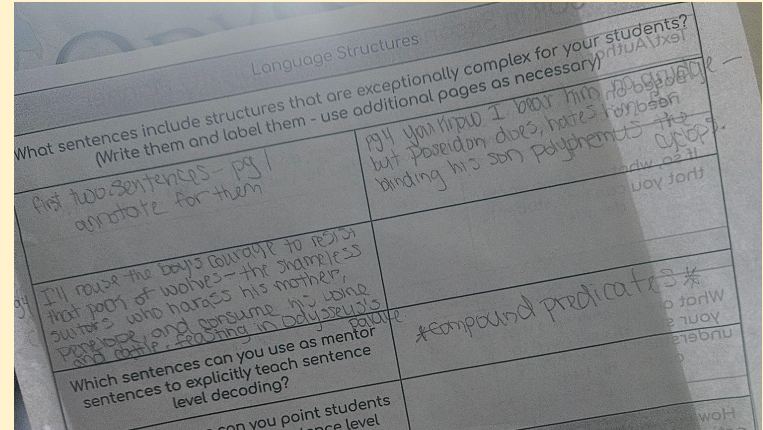 Language Structures
What sentences include structures that are exceptionally complex for your students?
(Write them and label them - use additional pages as necessary)
first two sentences - pg 1
annotate for them
pg 4 you know I bear him no grudge -
but Poseidon does, hates him for
blinding his son polyphemus the
cyclops.
I'll rouse the boy's courage to resist
that pack of wolves - the shameless
suitors who harass his mother,
penelope, and consume his wine
and cattle, feasting in Odysseus's
palace
*compound predicates*
Which sentences can you use as mentor
sentences to explicitly teach sentence
level decoding?
can you point students
nce level